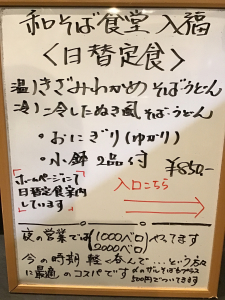 和そば食堂 入福
〈日替定食〉
温)きざみわかめそばうどん
冷)冷したぬき風そばうどん
・おにぎり(ゆかり)
・小鉢2品付
¥850-
ホームページにて
日替定食案内
しています
入口こちら
夜の営業では 1000ベロ やってます
2000ベロ
今の時期 軽く呑んで…という方々
に最適のコスパです
〆のサんそばもプラス
500円でついてきます